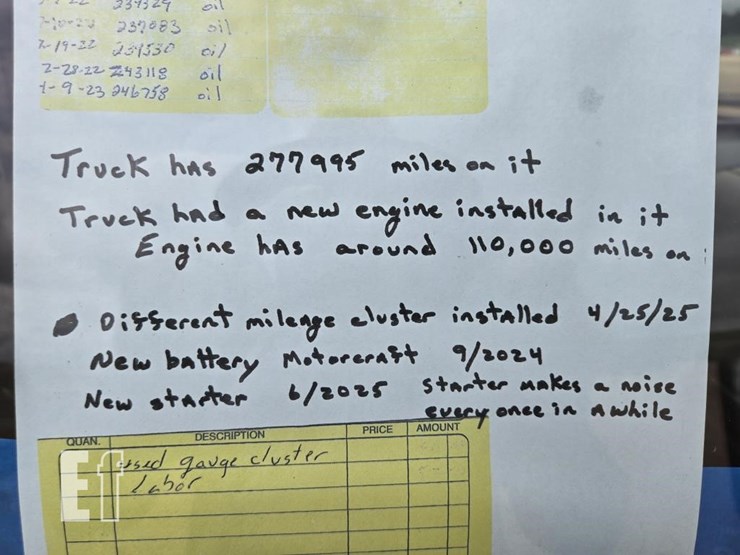 239329 oil
237083 oil
239530 oil
2-28-22 243118 oil
1-9-23 246758 oil
Truck has 277995 miles on it
Truck had a new engine installed in it
Engine has around 110,000 miles on
Different mileage cluster installed 4/25/25
New battery Motorcraft 9/2024
New starter 6/2025 starter makes a noise
every once in a while
QUAN. DESCRIPTION PRICE AMOUNT
used gauge cluster
Labor
Ef